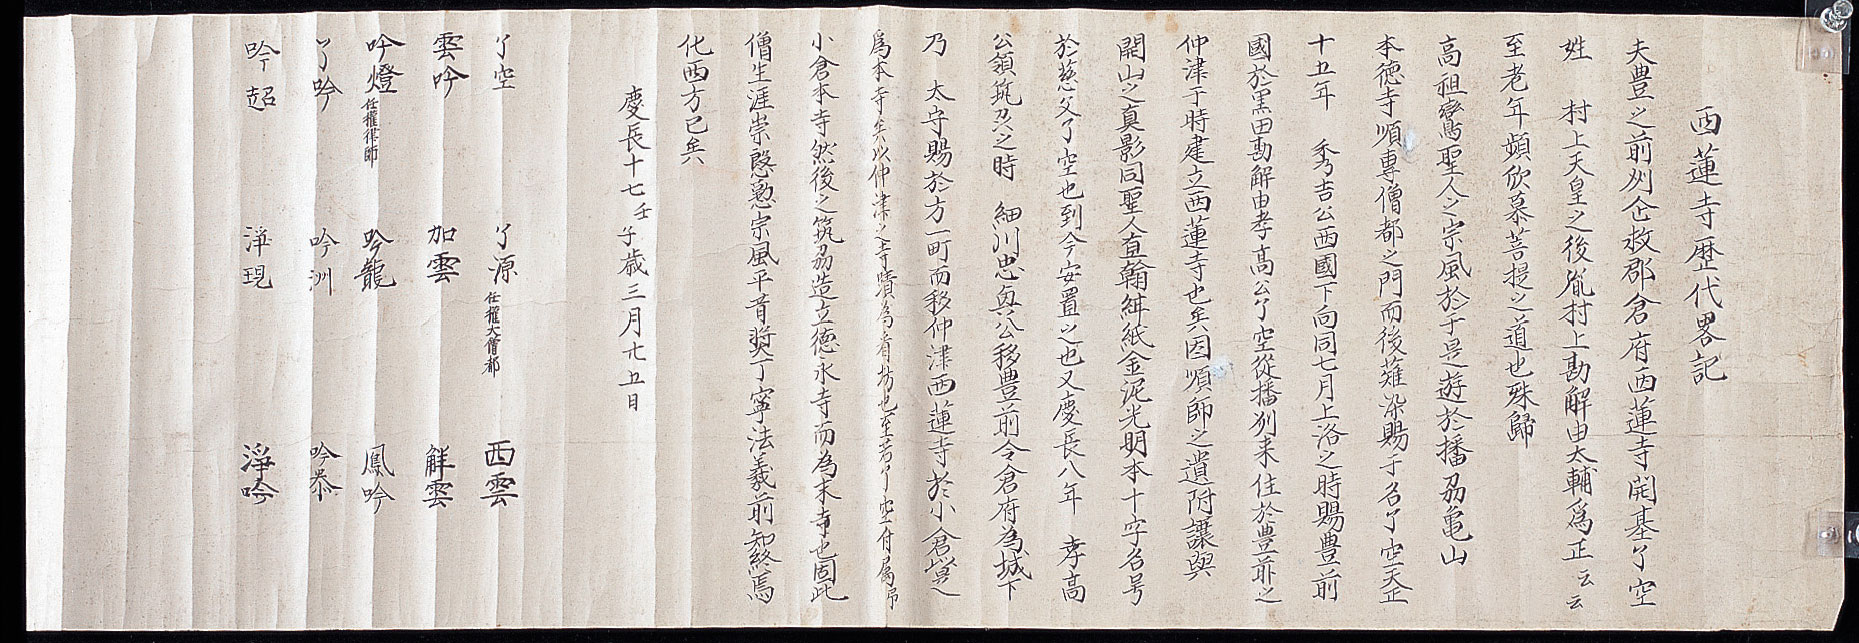 西蓮寺歴代畧記
夫豊之前州企救郡倉府西蓮寺開基了空
姓　村上天皇之後胤村上勘解由太輔爲正云云
至老年頻欣慕菩提之道也殊歸
高祖鸞聖人之宗風於于是遊於播刕亀山
本徳寺順專僧都之門而後薙染賜于名了空天正
十五年　秀吉公西國下向同七月上洛之時賜豊前
國於黒田勘解由孝高公了空從播州来住於豊前之
仲津于時建立西蓮寺也矣因順師之遺附讓與
開山之真影同聖人直翰紺紙金泥光明本十字名号
於慈父了空也到今安置之也又慶長八年　孝高
公領筑刕之時　細川忠奥公移豊前今倉府為城下
乃　太守賜於方一町而移仲津西蓮寺於小倉
爲本寺矣以仲津之寺蹟為看坊也至若了空付属
小倉本寺然後之筑刕造立徳永寺而為末寺也固此
僧生涯崇慇懃宗風平昔奨丁寧法義前知終焉
化西方已矣
慶長十七壬子歳三月廿五日
了空　了源任權大僧都　西雲
雲吟　加雲　解雲
吟燈任權律師　吟龍　鳳吟
了吟　吟洲　吟恭
吟超　淨現　淨吟